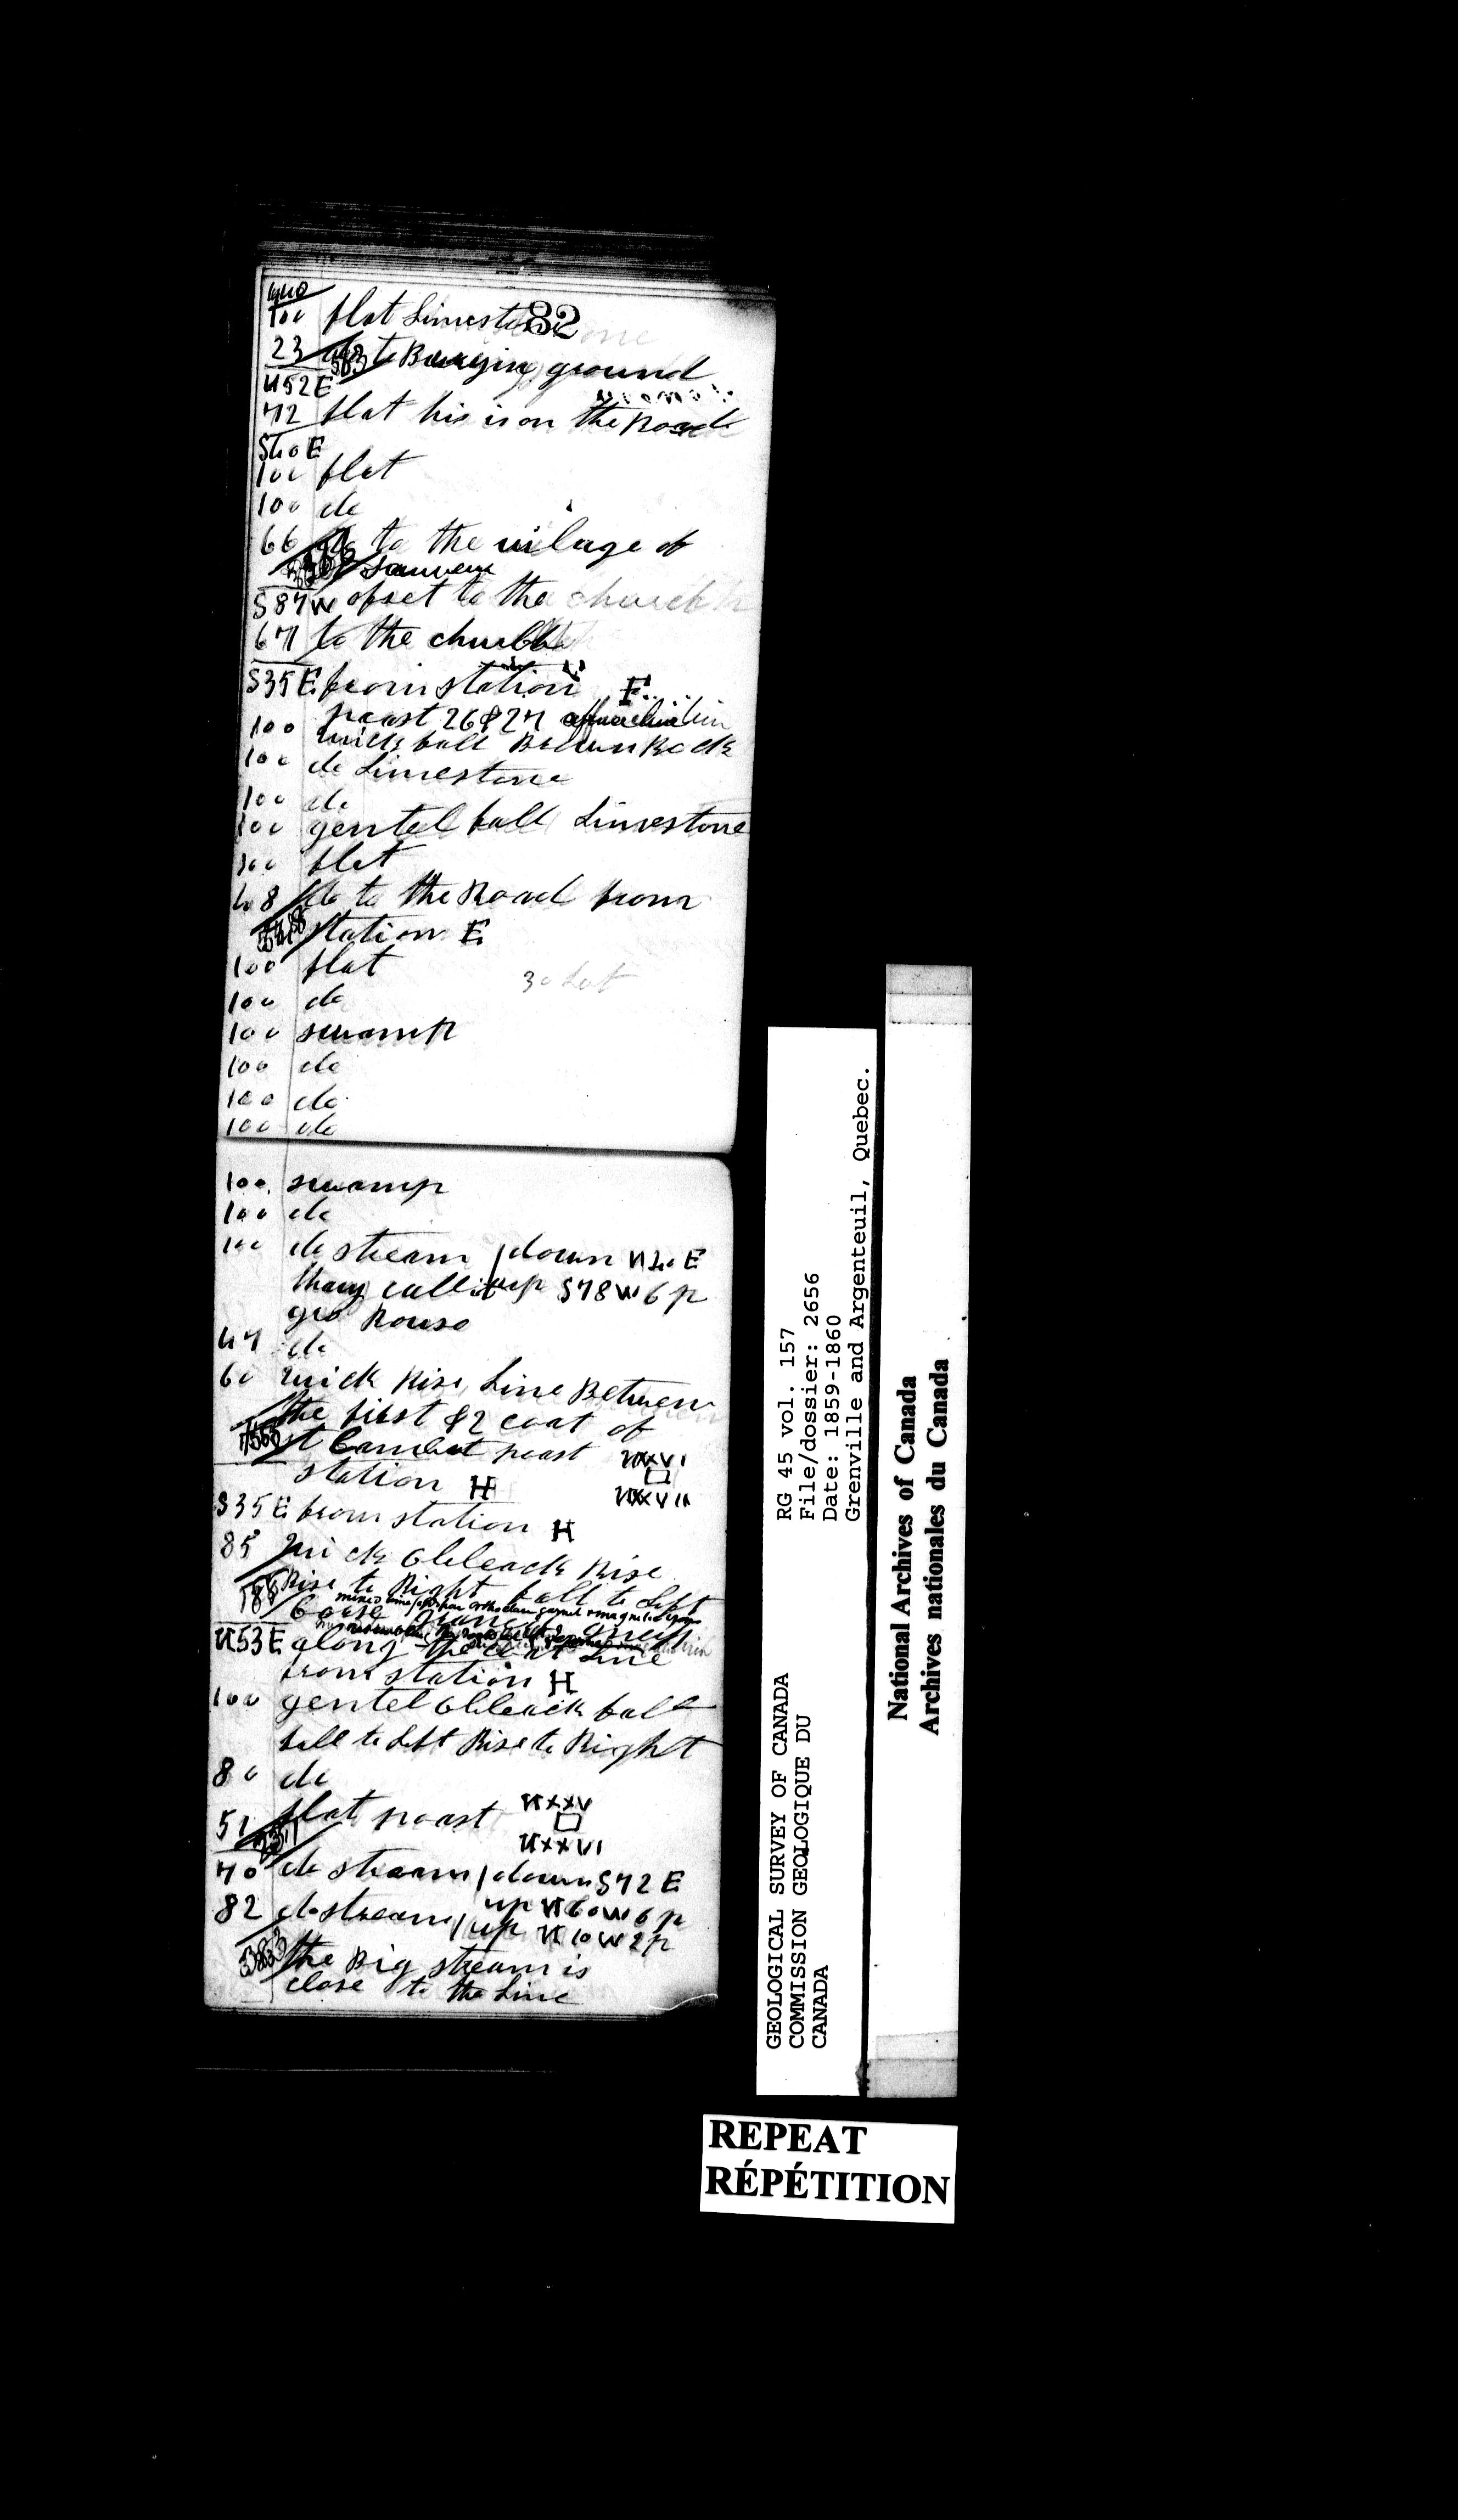 32
100 flat Limestone
23 do to Burying ground
563
N52E
72 flat his is on the Road
S40E
100 flat
100 do
66 do to the vilage of
S87W ofset to the church
67 to the church
S35E from station F
100 poast 26 & 27
quick fall Brown Rock
100 do Limestone
100 do
100 gentel fall Limestone
100 flat
48 do to the Road from
548 station E
100 flat
30 Lot
100 do
100 swamp
100 do
100 do
100 do
100 swamp
100 do
100 do stream / down N40E
thay call it up S78W 6 p
gro Rouse
47 do
60 quick Rise Line Between
the first & 2 coat of
st Cambut poast
station H
XXVI
XXVII
S35E from station H
85 quick obleack Rise
Rise to Right fall to Left
185
N53E along the Line
from station H
100 gentel obleack fall
fall to Left Rise to Right
80 do
51 flat poast
231
NXXV
NXXVI
70 do stream / down S72E
up N60W 6 p
82 do stream / up N10W 2 p
383 the Big stream is
close to the Line
GEOLOGICAL SURVEY OF CANADA
COMMISSION GEOLOGIQUE DU
CANADA
RG 45 vol. 157
File/dossier: 2656
Date: 1859-1860
Grenville and Argenteuil, Quebec.
National Archives of Canada
Archives nationales du Canada
REPEAT
RÉPÉTITION